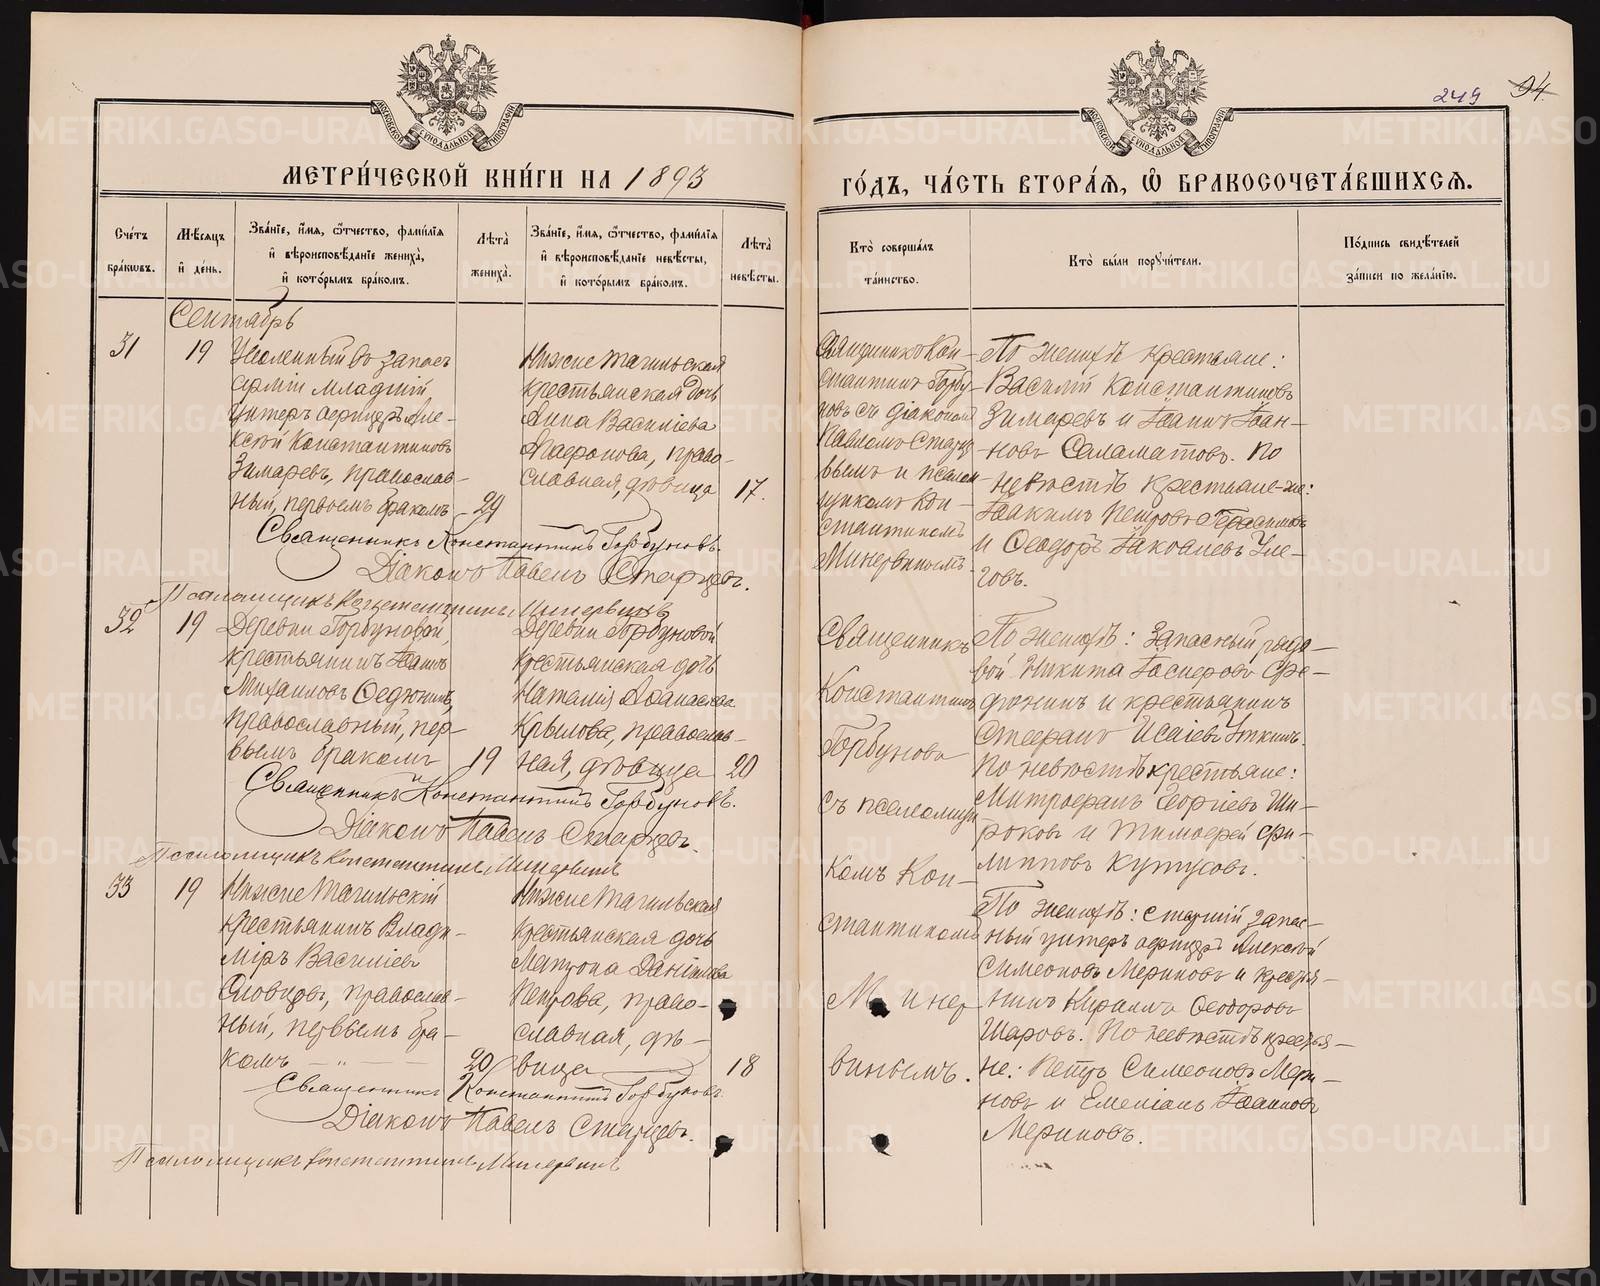 249 94.
МОСКОВСКОЙ СѴНОДАЛЬНОЙ ТИПОГРАФІИ
МОСКОВСКОЙ СѴНОДАЛЬНОЙ ТИПОГРАФІИ
МЕТРИ́ЧЕСКОЙ КНИ́ГИ НА 1893
ГО́ДЪ, ЧА́СТЬ ВТОРА́Я, Ѡ҆ БРАКОСОЧЕТА́ВШИХСЯ.
Сче́тъ бра́кѡвъ.
Мѣ́сяцъ и҆ де́нь.
Зва́нїе, и҆́мя, ѻ҆́тчество, фами́лїя и҆ вѣроисповѣ́данїе жениха̀, и҆ кото́рымъ бра́комъ.
Лѣ́та̀ жениха̀.
Зва́нїе, и҆́мя, ѻ҆́тчество, фами́лїя и҆ вѣроисповѣ́данїе невѣ́сты, и҆ кото́рымъ бра́комъ.
Лѣ́та̀ невѣ́сты.
Кто̀ соверша́лъ та́инство.
Кто̀ бы́ли поручи́тели.
По́дпись свидѣ́телей за́писи по жела́нїю.
Сентябрь
31
19
Уволенный въ запасъ
арміи младшій
унтеръ офицеръ Але-
ксѣй Константиновъ
Зимаревъ, православ-
ный, первымъ бракомъ
29
Нижне Тагильская
крестьянская дочь
Анна Василіева
Агафонова, право-
славная, дѣвица
17.
Священникъ Кон-
стантинъ Горбу-
новъ съ діакономъ
Павломъ Старце-
вымъ и псалом-
щикомъ Кон-
стантиномъ
Минервинымъ.
По женихѣ крестьяне:
Василій Константиновъ
Зимаревъ и Іоаннъ Іоан-
новъ Саламатовъ. По
невѣстѣ крестьяне-же:
Іоакимъ Петровъ Герасимовъ
и Ѳеодоръ Іаковлевъ Уле-
говъ.
Священникъ Константинъ Горбуновъ.
Діаконъ Павелъ Старцевъ.
Псаломщикъ Константинъ Минервинъ
32
19
Деревни Горбуновой,
крестьянинъ Іоаннъ
Михаиловъ Ѳедюнинъ,
православный, пер-
вымъ бракомъ
19
Деревни Горбуновой
крестьянская дочь
Наталія Аѳанасіева
Крылова, православ-
ная, дѣвица
20
Священникъ
Константинъ
Горбуновъ
съ псаломщи-
комъ Кон-
стантиномъ
Минер-
винымъ.
По женихѣ: Запасный рядо-
вой Никита Гасперовъ Фе-
дюнинъ и крестьянинъ
Стефанъ Исаіевъ Уткинъ.
По невѣстѣ крестьяне:
Митрофанъ Георгіевъ Ши-
роковъ и Тимофей Фи-
липповъ Кутузовъ.
Священникъ Константинъ Горбуновъ.
Діаконъ Павелъ Старцевъ.
Псаломщикъ Константинъ Минервинъ
33
19
Нижне Тагильскій
крестьянинъ Влади-
міръ Василіевъ
Словцовъ, православ-
ный, первымъ бра-
комъ — „ —
20
Нижне Тагильская
крестьянская дочь
Матрона Даніилова
Петрова, право-
славная, дѣ-
вица
18
По женихѣ: старшій запас-
ный унтеръ офицеръ Алексѣй
Симеоновъ Мериновъ и крестья-
нинъ Кириллъ Ѳеодоровъ
Шаровъ. По невѣстѣ крестья-
не: Петръ Симеоновъ Мери-
новъ и Емеліанъ Іоанновъ
Мериновъ.
Священникъ Константинъ Горбуновъ.
Діаконъ Павелъ Старцевъ.
Псаломщикъ Константинъ Минервинъ
METRIKI.GASO-URAL.RU